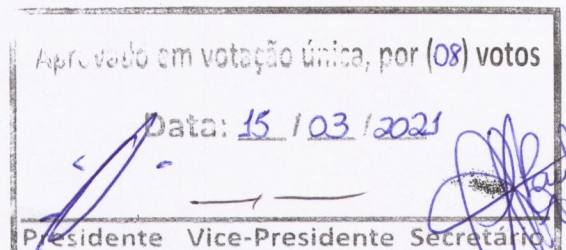 Aprovado em votação única, por (08) votos
Data: 15 / 03 / 2021
Presidente Vice-Presidente Secretário